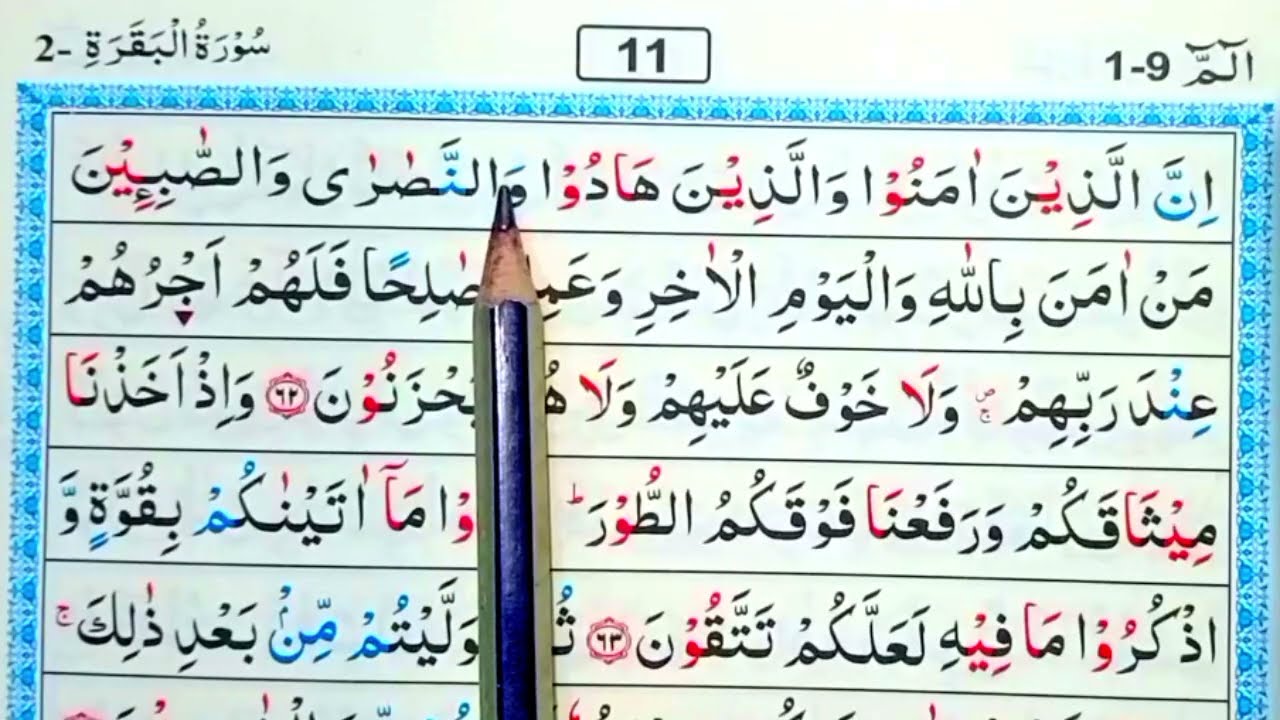 الٓمّٓ 1-9
11
سُوْرَةُ الْبَقَرَةِ -2
اِنَّ الَّذِيْنَ اٰمَنُوْا وَالَّذِيْنَ هَادُوْا وَالنَّصٰرٰى وَالصّٰبِـِٕيْنَ
مَنْ اٰمَنَ بِاللّٰهِ وَالْيَوْمِ الْاٰخِرِ صٰلِحًا فَلَهُمْ اَجْرُهُمْ
عِنْدَ رَبِّهِمْ ۖۚ وَلَا خَوْفٌ عَلَيْهِمْ وَلَا ﴿٦٢﴾ وَاِذْ اَخَذْنَا
مِيْثَاقَكُمْ وَرَفَعْنَا فَوْقَكُمُ الطُّوْرَ ؕ مَآ اٰتَيْنٰكُمْ بِقُوَّةٍ وَّ
اذْكُرُوْا مَا فِيْهِ لَعَلَّكُمْ تَتَّقُوْنَ ﴿٦٣﴾ مِّنْۢ بَعْدِ ذٰلِكَ ۚ